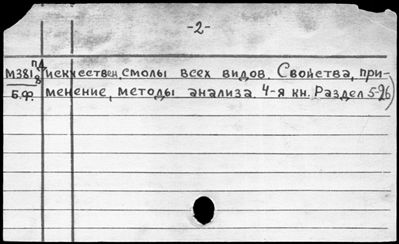 -2-
М381 пл искусствен. смолы всех видов. Свойства, при-
Б.Ф. менение, методы анализа. 4-я кн. Раздел 5-96)